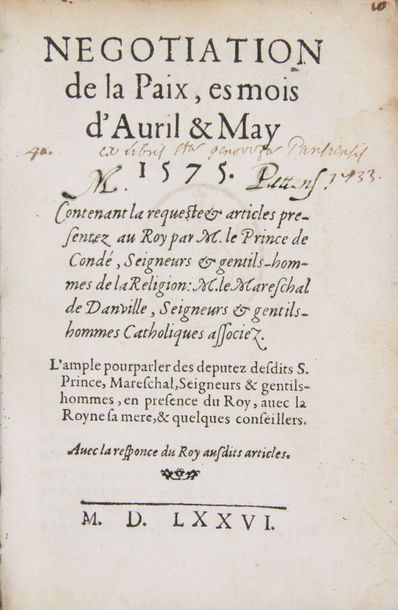 10
NEGOTIATION
de la Paix, es mois
d'Auril & May
ex libris Stae genovefae Parisiensis
1575. 1733.
Contenant la requeste & articles pre-
sentez au Roy par M. le Prince de
Condé, Seigneurs & gentils-hom-
mes de la Religion: M. le Mareschal
de Danville, Seigneurs & gentils-
hommes Catholiques associez.
L'ample pourparler des deputez desdits S.
Prince, Mareschal, Seigneurs & gentils-
hommes, en presence du Roy, auec la
Royne sa mere, & quelques conseillers.
Auec la responce du Roy ausdits articles.
M. D. LXXVI.